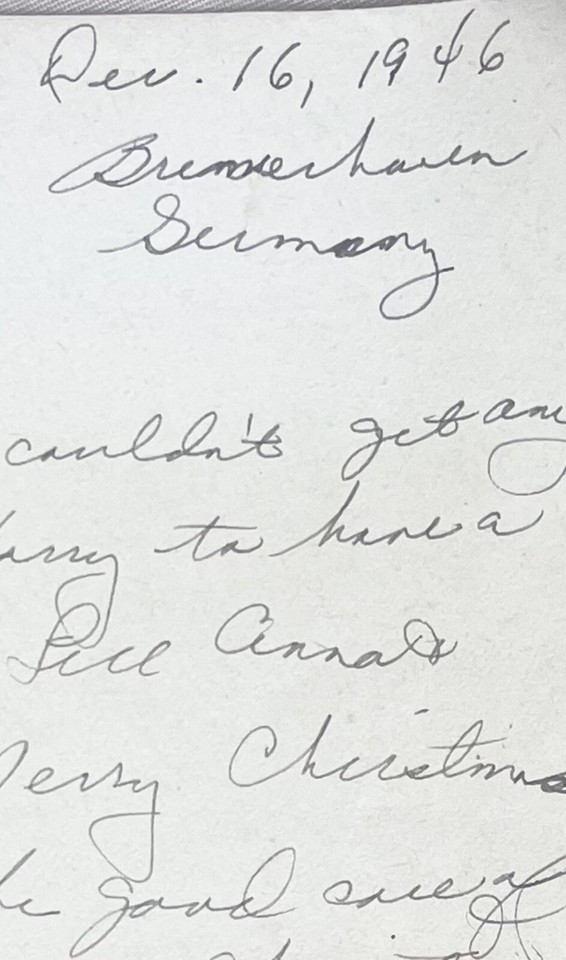 Dec. 16, 1946
Bremerhaven
Germany
couldn't get any
Harry to have a
Tell Anna &
Merry Christmas
good care of